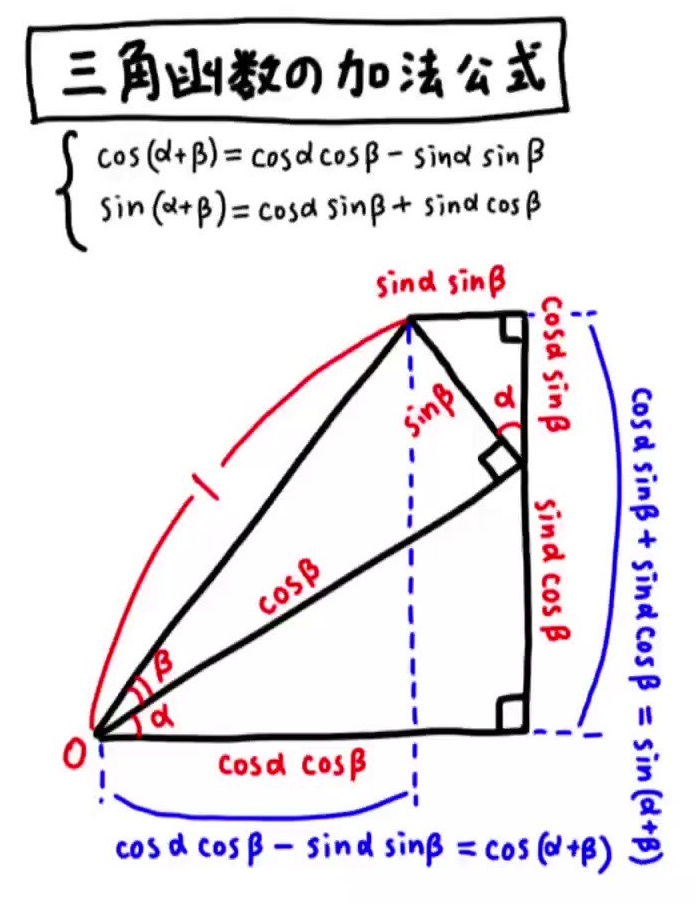 三角函数の加法公式
cos(α+β)=cosαcosβ-sinα sinβ
sin(α+β)=cosα sinβ+ sinα cosβ
sinα sinβ
cosα sinβ
sinβ
α
1
cosβ
sinα cosβ
cosα sinβ + sinα cosβ = sin(α+β)
β
α
O
cosα cosβ
cosα cosβ - sinα sinβ = cos(α+β)